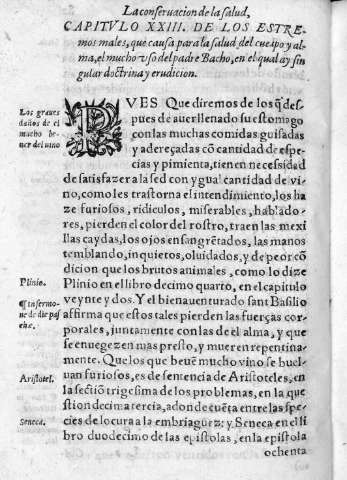 La conseruacion de la salud,
CAPITVLO XXIII. DE LOS ESTRE-
mos males, que causa para la salud del cuerpo y al-
ma, el mucho vso del padre Bacho, en el qual ay sin
gular doctrina y erudicion.
Los graues
daños de el
mucho be-
uer del vino
PVES Que diremos de los q̃ des-
pues de auer llenado su estomago
con las muchas comidas guisadas
y adereçadas cõ cantidad de espe-
cias y pimienta, tienen necessidad
de satisfazer a la sed con ygual cantidad de vi-
no, como les trastorna el intendimiento, los ha
ze furiosos, ridiculos, miserables, hablado-
res, pierden el color del rostro, traen las mexi
llas caydas, los ojos en sangrẽtados, las manos
temblando, inquietos, oluidados, y de peor cõ
dicion que los brutos animales, como lo dize
Plinio.
Plinio en el libro decimo quarto, en el capitulo
veynte y dos. Y el bienauenturado sant Basilio
¶ In sermo-
ne de die pas
chæ.
affirma que estos tales pierden las fuerças cor-
porales, juntamente con las de el alma, y que
se enuegezen mas presto, y mueren repentina-
mente. Que los que beuẽ mucho vino se buel-
Aristotel.
uan furiosos, es de sentencia de Aristoteles, en
la sectiõ trigesima de los problemas, en la que
stion decima tercia, adon de cuẽta entre las spe-
cies de locura a la embriaguez: y Seneca en el li
Seneca.
bro duodecimo de las epistolas, en la epistola
ochenta